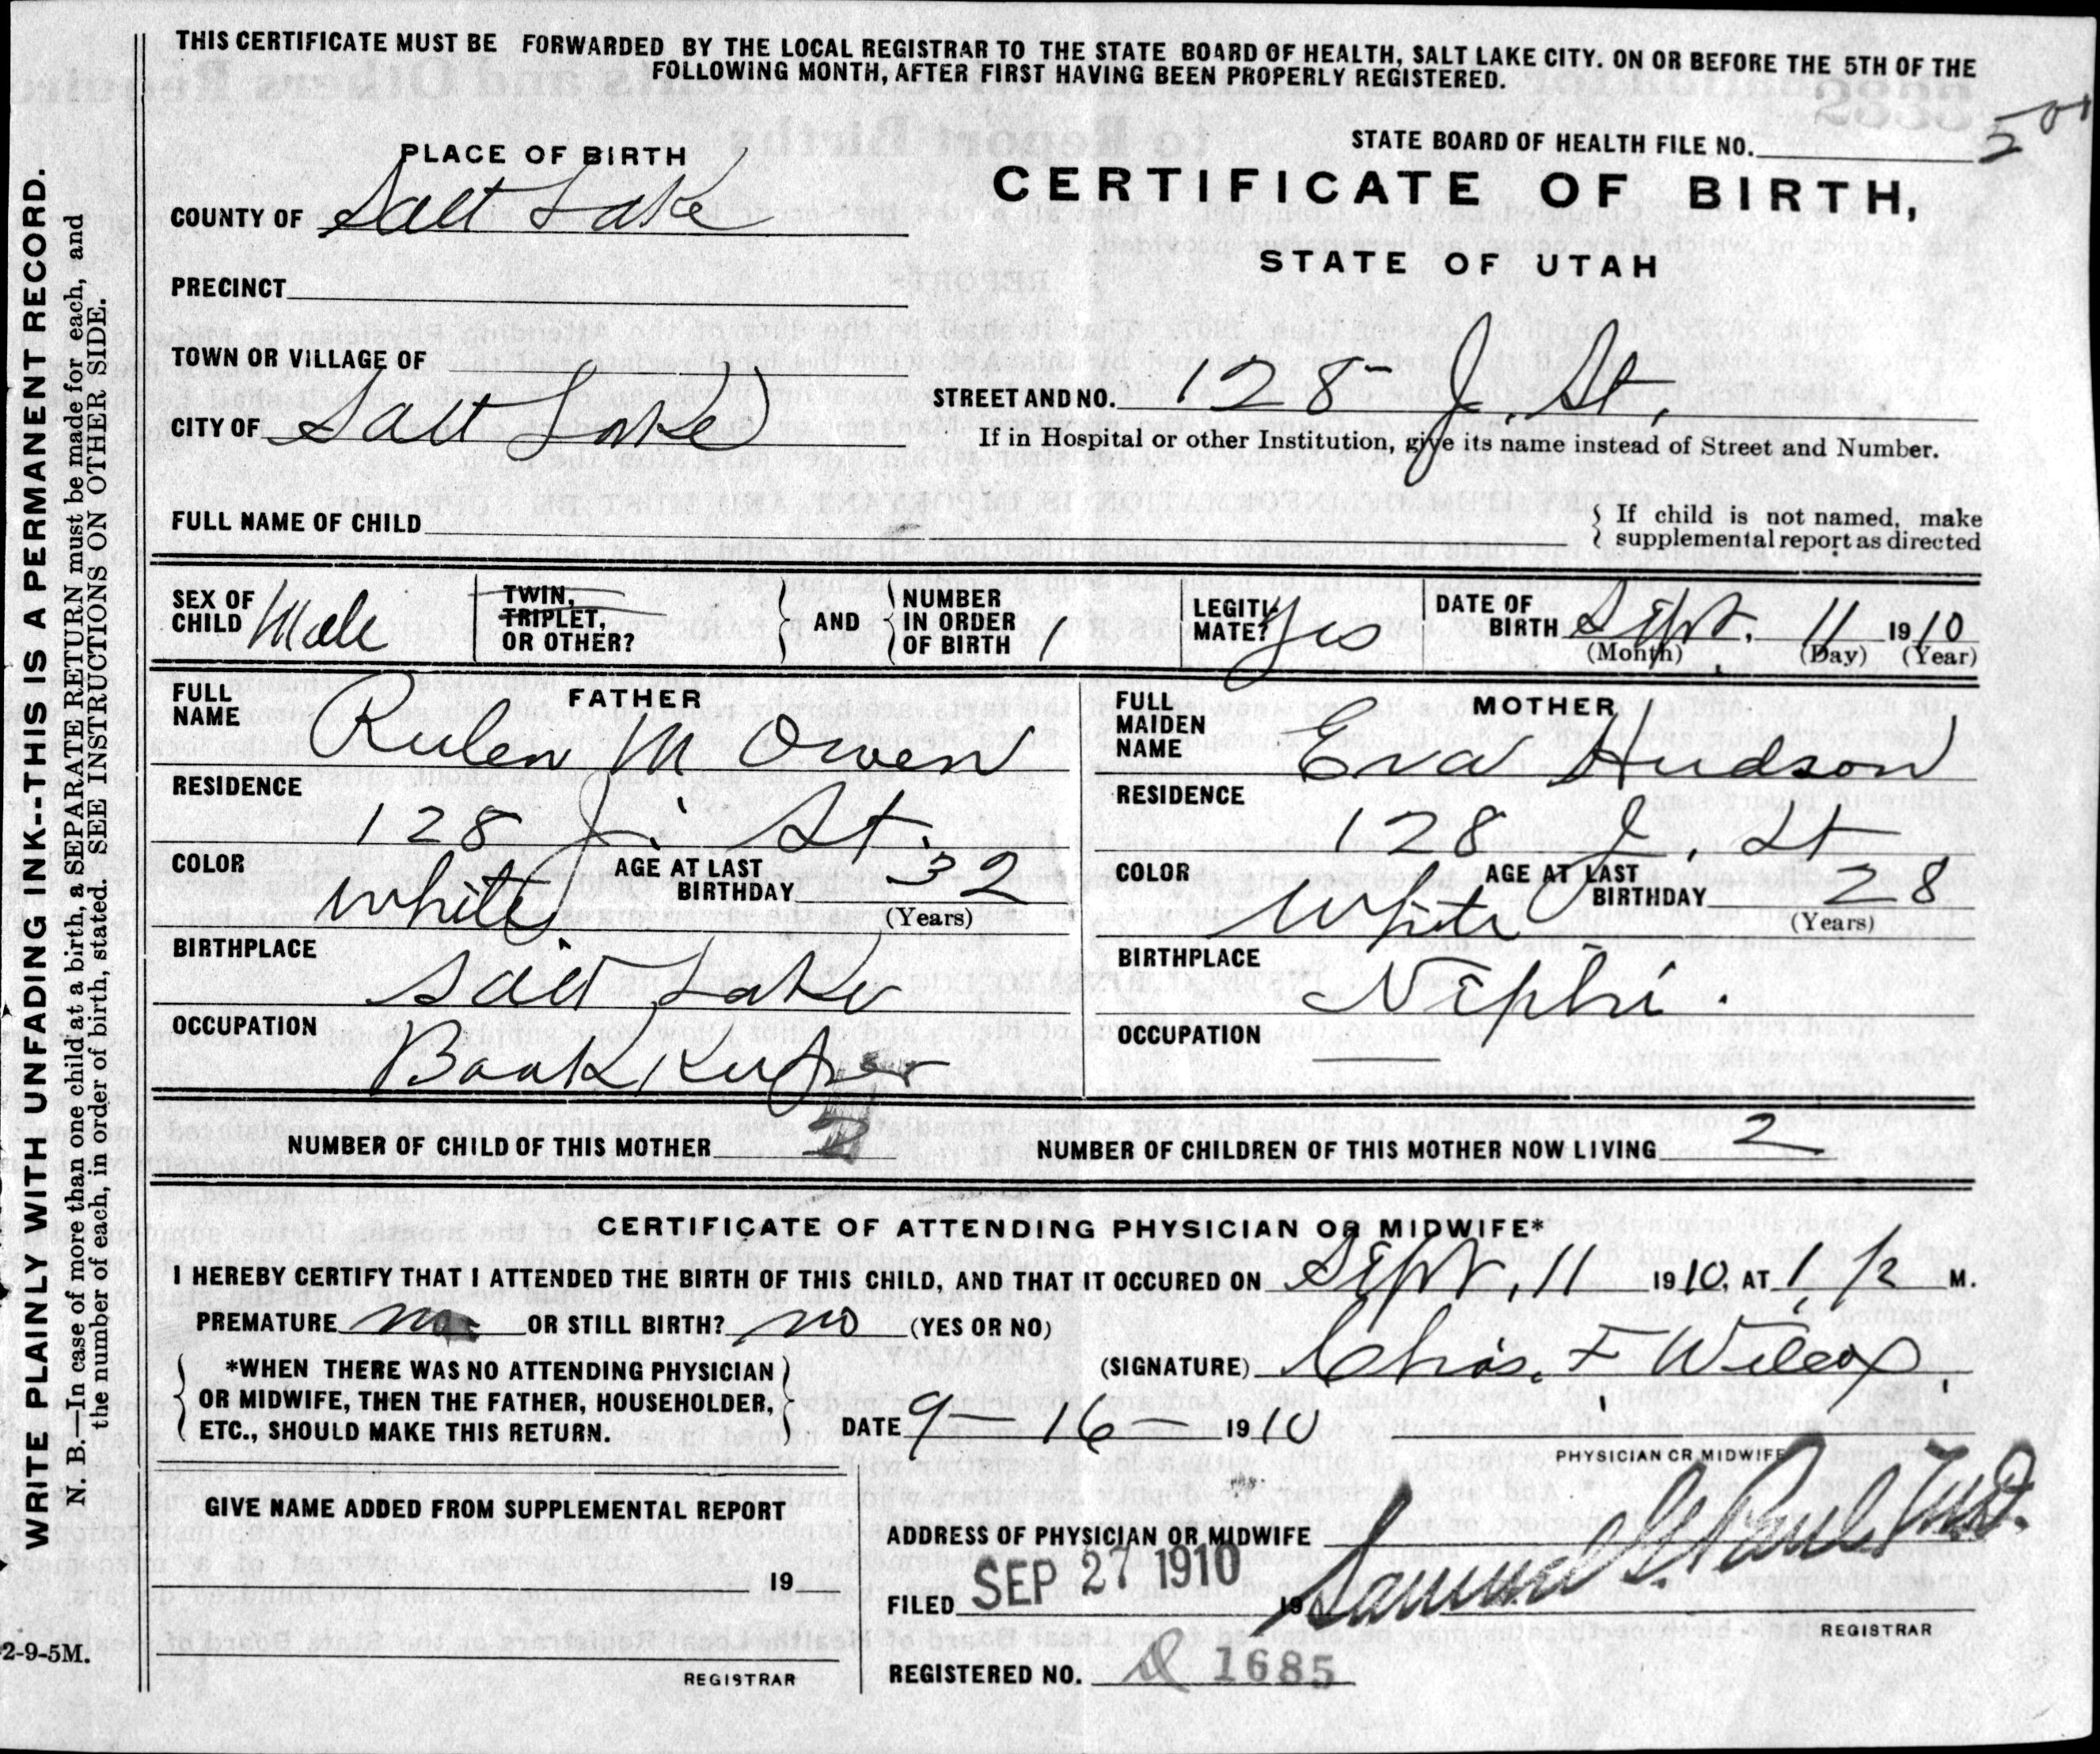 THIS CERTIFICATE MUST BE FORWARDED BY THE LOCAL REGISTRAR TO THE STATE BOARD OF HEALTH, SALT LAKE CITY. ON OR BEFORE THE 5TH OF THE
FOLLOWING MONTH, AFTER FIRST HAVING BEEN PROPERLY REGISTERED.
WRITE PLAINLY WITH UNFADING INK--THIS IS A PERMANENT RECORD.
N. B.—In case of more than one child at a birth, a SEPARATE RETURN must be made for each, and
the number of each, in order of birth, stated. SEE INSTRUCTIONS ON OTHER SIDE.
STATE BOARD OF HEALTH FILE NO.
CERTIFICATE OF BIRTH,
STATE OF UTAH
PLACE OF BIRTH
COUNTY OF Salt Lake
PRECINCT
TOWN OR VILLAGE OF
CITY OF Salt Lake
STREET AND NO. 128 J. St.
If in Hospital or other Institution, give its name instead of Street and Number.
FULL NAME OF CHILD
If child is not named, make
supplemental report as directed
SEX OF CHILD Male
TWIN,
TRIPLET,
OR OTHER?
AND
NUMBER
IN ORDER
OF BIRTH 1
LEGITI-
MATE? Yes
DATE OF
BIRTH Sept. 11 1910
(Month) (Day) (Year)
FATHER
FULL
NAME Rulen M Owen
RESIDENCE
128 J. St.
COLOR White
AGE AT LAST
BIRTHDAY 32
(Years)
BIRTHPLACE
Salt Lake
OCCUPATION
Bookkeeper
MOTHER
FULL
MAIDEN
NAME Eva Hudson
RESIDENCE
128 J. St
COLOR White
AGE AT LAST
BIRTHDAY 28
(Years)
BIRTHPLACE
Nephi.
OCCUPATION
NUMBER OF CHILD OF THIS MOTHER 2
NUMBER OF CHILDREN OF THIS MOTHER NOW LIVING 2
CERTIFICATE OF ATTENDING PHYSICIAN OR MIDWIFE*
I HEREBY CERTIFY THAT I ATTENDED THE BIRTH OF THIS CHILD, AND THAT IT OCCURED ON Sept. 11 1910, AT M.
PREMATURE no OR STILL BIRTH? no (YES OR NO)
*WHEN THERE WAS NO ATTENDING PHYSICIAN
OR MIDWIFE, THEN THE FATHER, HOUSEHOLDER,
ETC., SHOULD MAKE THIS RETURN.
(SIGNATURE) Chas. F Wilcox
DATE 9-16- 1910
PHYSICIAN OR MIDWIFE
GIVE NAME ADDED FROM SUPPLEMENTAL REPORT
19
REGISTRAR
ADDRESS OF PHYSICIAN OR MIDWIFE
FILED SEP 27 1910 19 Samuel G. Paul, M.D.
REGISTRAR
REGISTERED NO. 1685
2-9-5M.